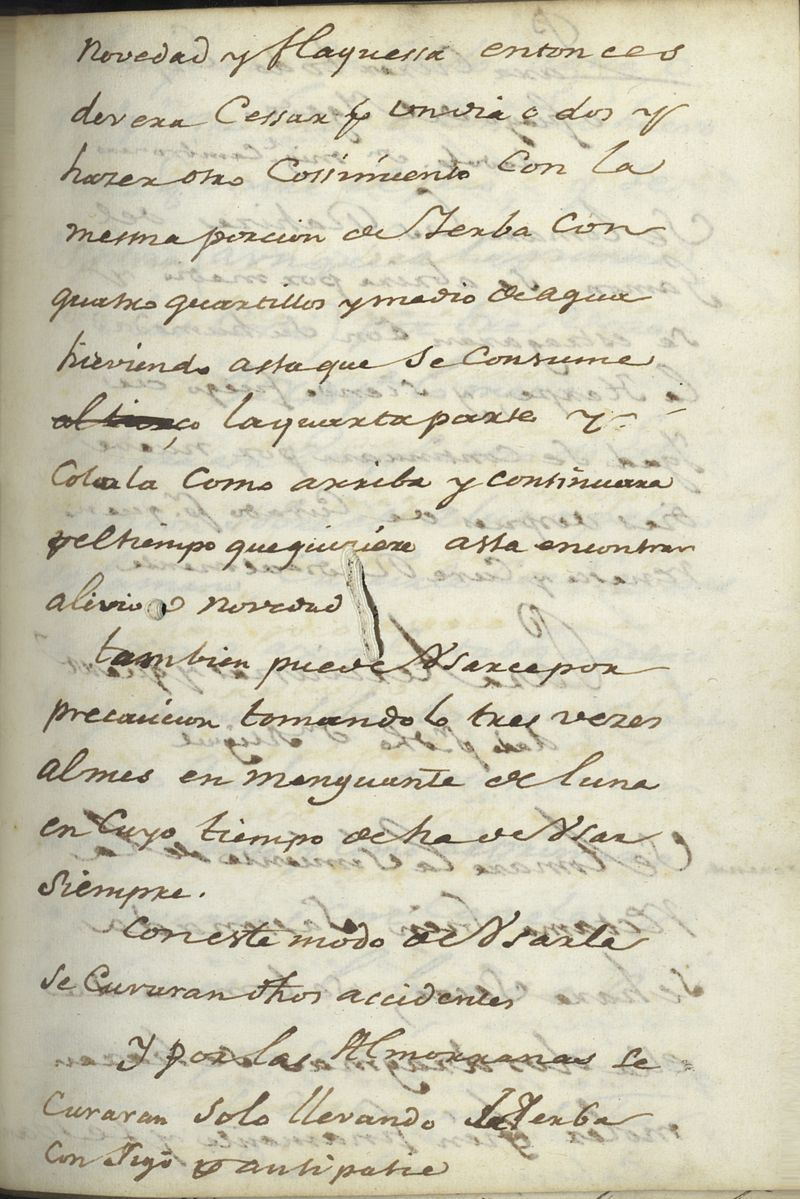 novedad y flaquessa entonces
devera Cessar pr un dia o dos y
hazer otro Cossimiento Con la
mesma porcion de Yerba Con
quatro quartillos y medio de agua
hirviendo asta que se Consume
la quarta parte y
Colala Como arriba y continuara
el tiempo que quiziere asta encontrar
alivio o novedad
tambien puede Vsarce por
precaucion tomandolo tres vezes
al mes en menguante de luna
en Cuyo tiempo de ha de Vsar
siempre.
Con este modo de Vsarla
se Curaran dhos accidentes
Y por las Almorranas se
Curaran solo llevando la Yerba
con sigo antipatie